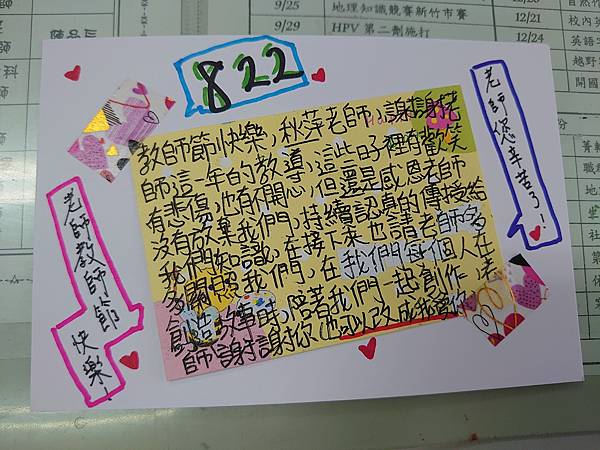 9/25 地理知識競賽新竹市賽 12/21
9/29 HPV 第二劑施打 12/24
822
教師節快樂,秋萍老師,謝謝花
師這一年的教導,這些日子裡有歡笑
有悲傷,也有不開心,但還是感恩老師
沒有放棄我們,持續認真的傳授給
我們知識,在接下來也請老師多
多關照我們,在我們每個人在
創造故事時,陪著我們一起創作,老
師謝謝你也可以改成我愛你
老師您辛苦了!
老師教師節
快樂!